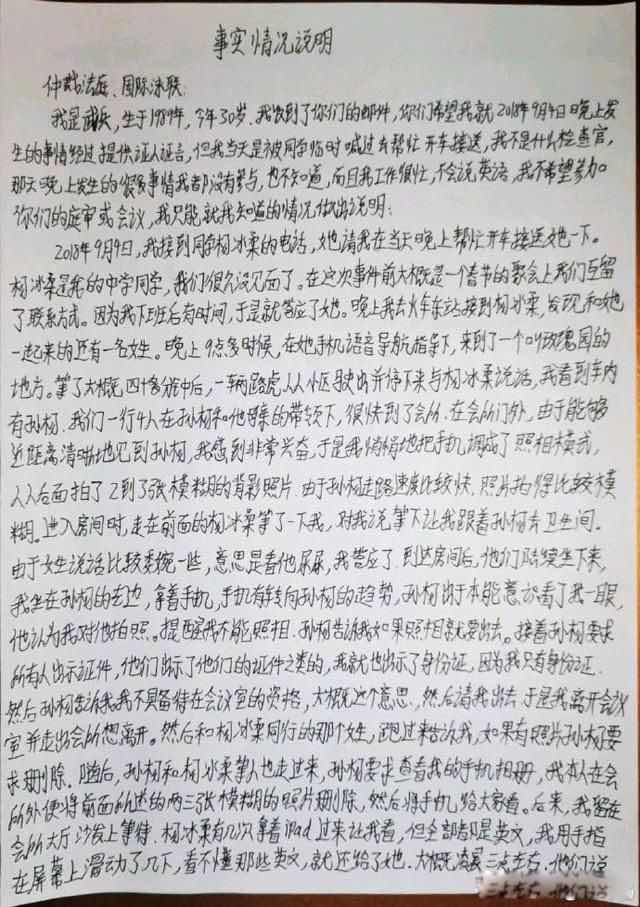 事实情况说明
仲裁法庭、国际泳联:
我是 ，生于1989年，今年30岁。我收到了你们的邮件，你们希望我就2018年9月4日晚上发
生的事情经过提供证人证言，但我当天是被同学临时喊过去帮忙开车接送，我不是什么检查官，
那天晚上发生的很多事情我都没有参与，也不知道，而且我工作很忙，不会说英语，我不希望参加
你们的庭审或会议，我只能就我知道的情况做出说明:
2018年9月 日，我接到同学杨冰柔的电话，她请我在当天晚上帮忙开车接送她一下。
杨冰柔是我的中学同学，我们很久没见面了。在这次事件前大概是一个春节的聚会上我们互留
了联系方式。因为我下班后有时间，于是就答应了她。晚上我去火车东站接到杨冰柔，发现和她
一起来的还有一名女生。晚上9点多时候，在她手机语音导航指导下，来到了一个叫玫瑰园的
地方。等了大概四十多分钟后，一辆路虎从小区驶出并停下来与杨冰柔说话，我看到车内
有孙杨。我们一行4人在孙杨和他母亲的带领下，很快到了会所。在会所门外，由于能够
近距离清晰地见到孙杨，我感到非常兴奋，于是我悄悄地把手机调成了照相模式，
从后面拍了2到了3张模糊的背影照片。由于孙杨走路速度比较快，照片拍得比较模
糊。进入房间时，走在前面的杨冰柔等了一下我，对我说等下让我跟着孙杨去卫生间。
由于女生说话比较委婉一些，意思是看他尿尿，我答应了。到达房间后，他们陆续坐下来，
我坐在孙杨的左边，拿着手机，手机有转向孙杨的趋势，孙杨出于本能意识看了我一眼，
他认为我对他拍照。提醒我不能照相。孙杨告诉我如果照相就要出去。接着孙杨要求
所有人出示证件，他们出示了他们的证件之类的，我就也出示了身份证，因为我只有身份证。
然后孙杨告诉我我不具备待在会议室的资格，大概这个意思，然后请我出去，于是我离开会议
室并走出会所想离开。然后和杨冰柔同行的那个女生，跑过来告诉我，如果有照片孙杨要
求删除。随后，孙杨和杨冰柔等人也走过来，孙杨要求查看我的手机相册，我本人在会
所外便将前面所述的两三张模糊的照片删除，然后将手机给大家看。后来，我留在
会所大厅沙发上等待。杨冰柔有几次拿着iPad过来让我看，但全部都是英文，我用手指
在屏幕上滑动了几下，看不懂那些英文，就还给了她。大概凌晨三点左右，他们说